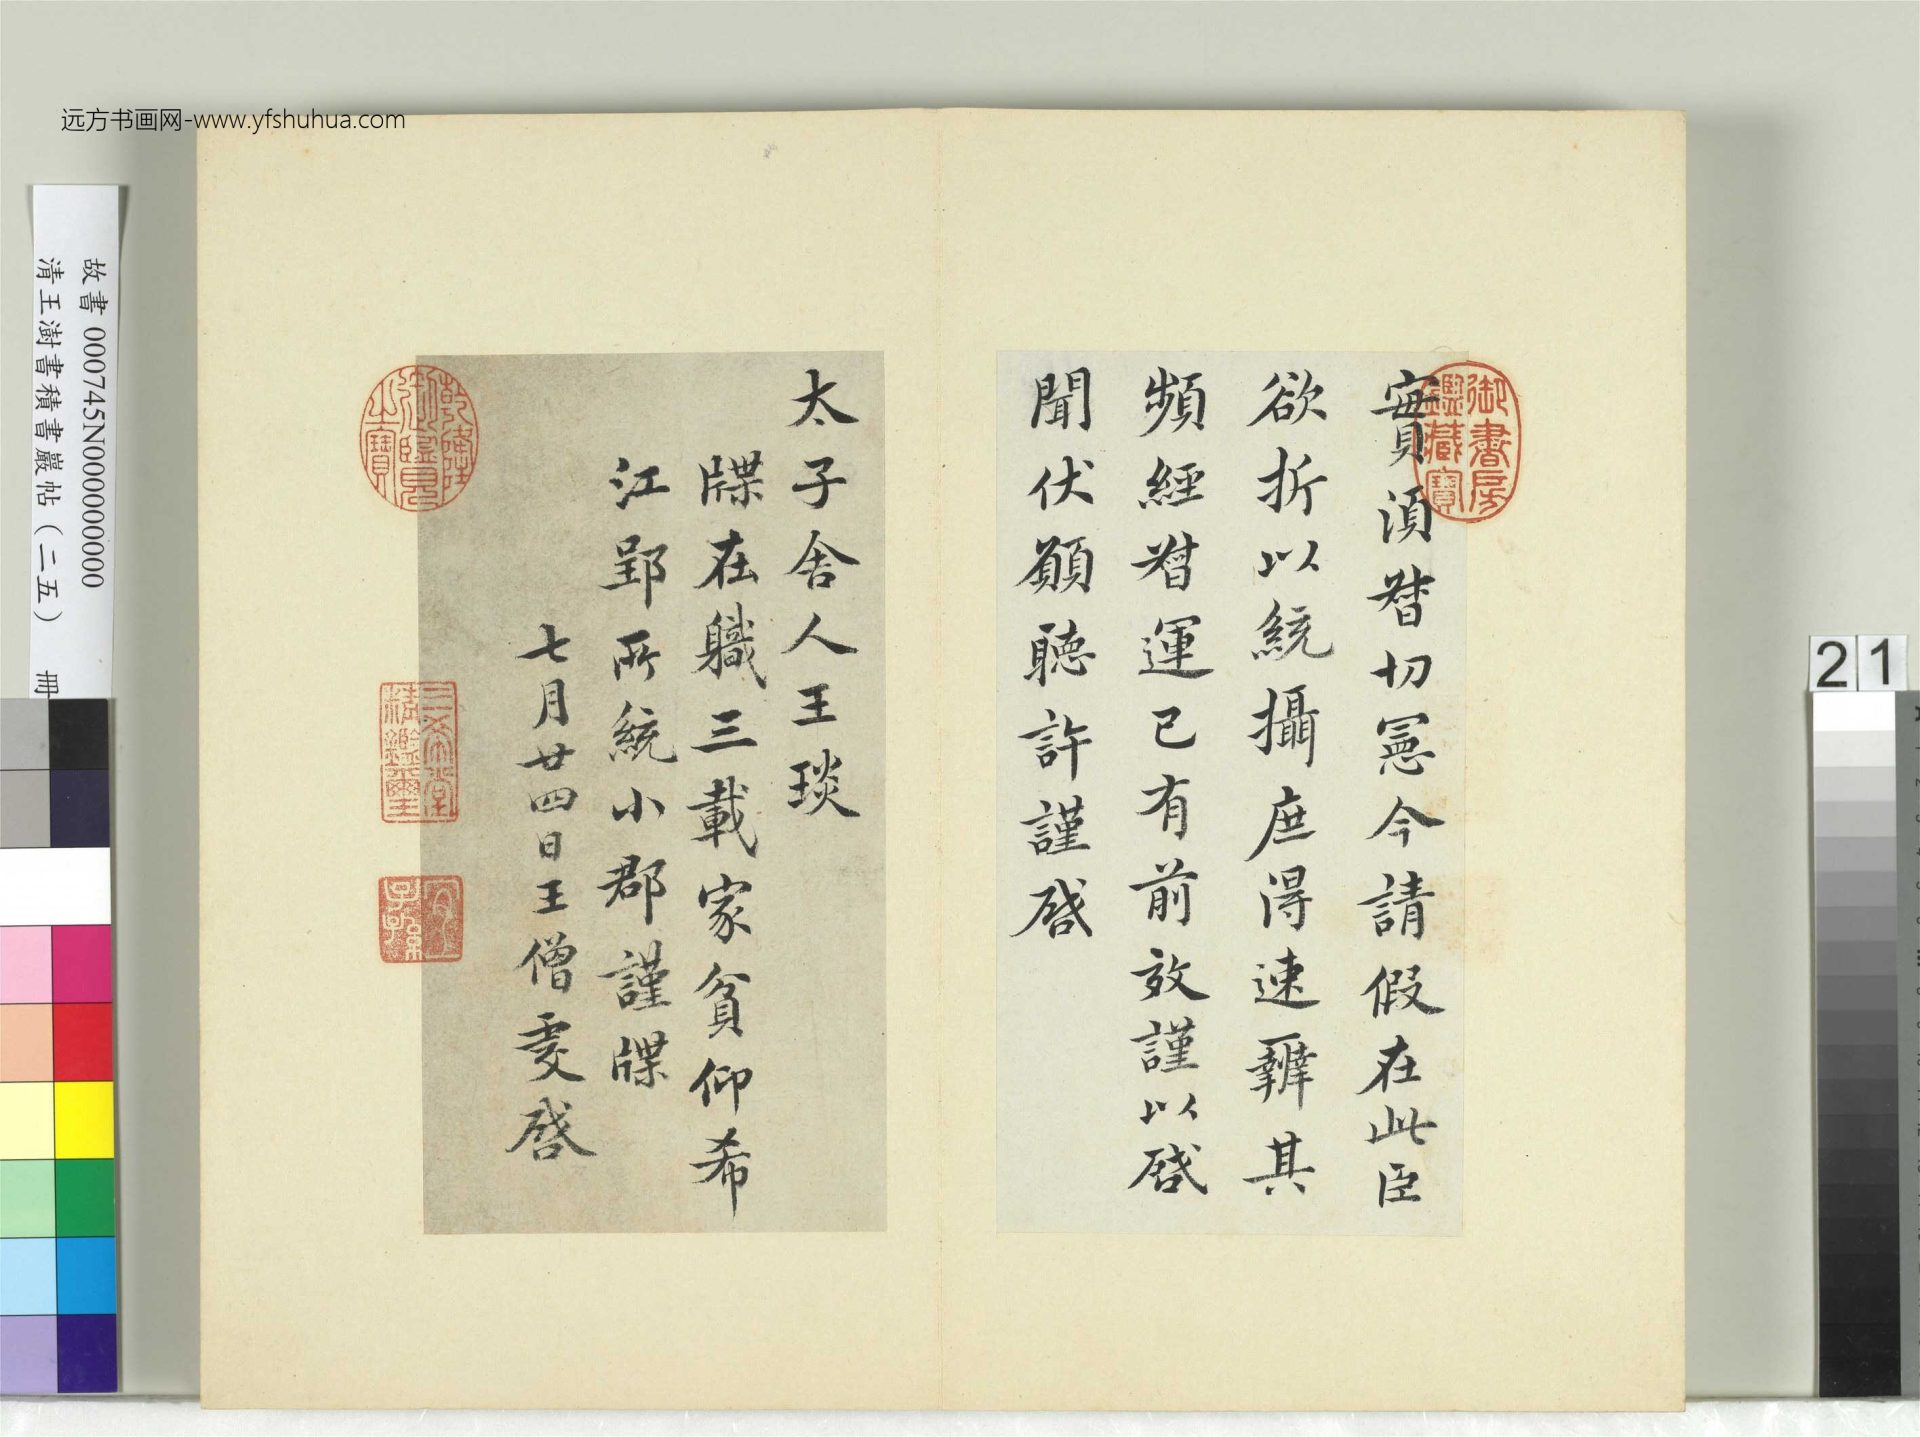 远方书画网-www.yfshuhua.com
故書 000745N000000000
清王澍書積書巖帖（二五） 冊
21
御書房鑑藏寶
實須督切冤今請假在此臣
欲折以統攝庶得速辦其
頻經督運已有前效謹以啓
聞伏願聽許謹啓
太子舍人王琰
牒在職三載家貧仰希
江郢所統小郡謹牒
七月廿四日王僧虔啓
乾隆御覽之寶
三希堂精鑑璽
宜子孫